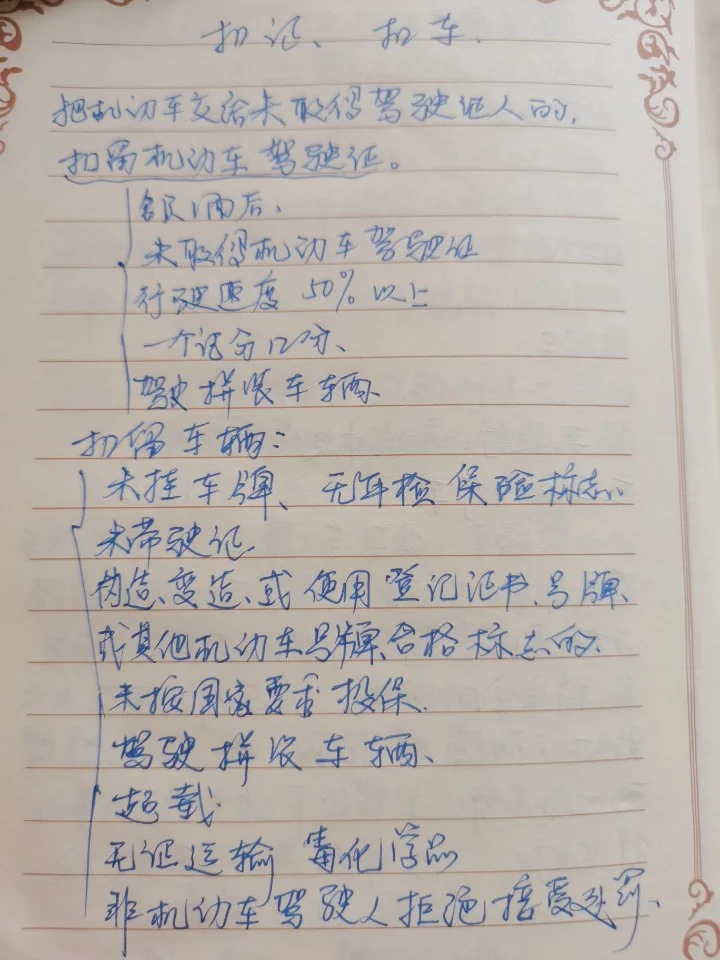 扣证、扣车、
把机动车交给未取得驾驶证人的,
扣留机动车驾驶证。
饮酒后、
未取得机动车驾驶证
行驶速度50%以上
一个记分12分、
驾驶拼装车辆、
扣留车辆:
未挂车牌、无年检保险标志。
未带驶证
伪造、变造、或使用登记证书、号牌、
或其他机动车号牌、合格标志的、
未按国家要求投保.
驾驶拼装车辆、
超载.
无证运输毒化学品
非机动车驾驶人拒绝接受处罚、